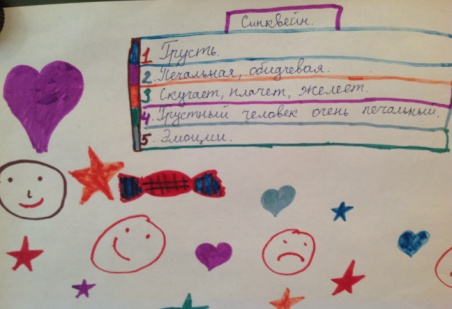 Синквейн.
1 Грусть.
2. Печальная, обидчевая.
3 Скучает, плачет, жалеет.
4. Грустный человек очень печальный.
5. Эмоции.